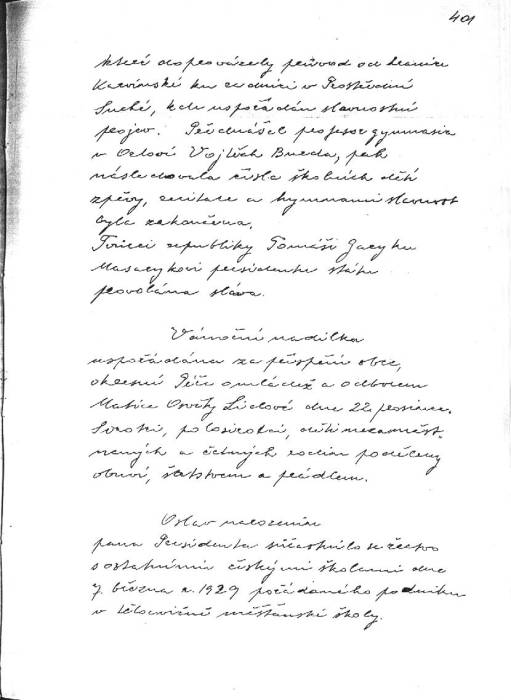 401
kteří doprovázely průvod od hranice
Karvinské ku radnici v Prostřední
Suché, kde uspořádán slavnostní
projev. Přednášel profesor gymnasia
v Orlové Vojtěch Bureda, pak
následovala čísla školních dětí
zpěvy, recitace a hymnami slavnost
byla zakončena.
Tvůrci republiky Tomáši Garyku
Masarykovi presidentu státu
provolána sláva.
Vánoční nadílka
uspořádána za přispění obce,
okresní Péče o mládež a odborem
Matice Osvěty Lidové dne 22 prosince.
Sirotci, polosirotci, děti nezaměst-
naných a četných rodin poděleny
obuví, šatstvem a prádlem.
Oslav narozenin
pana Presidenta súčastnilo se žactvo
s ostatními českými školami dne
7. března r. 1929 pořádaného podniku
v tělocvičně měšťanské školy.